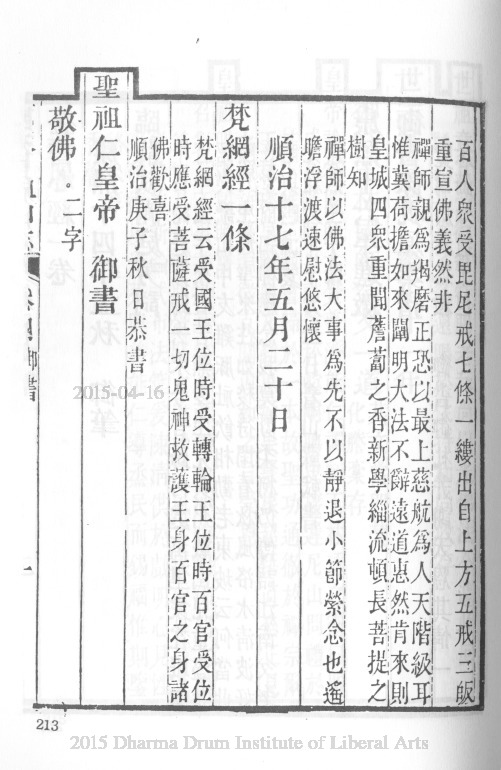 百人衆受毘尼戒七條一縷出自上方五戒三皈
重宣佛義然非
禪師親爲羯磨正恐以最上慈航爲人天階級耳
惟冀荷擔如來闡明大法不辭遠道惠然肯來則
皇城四衆重聞薝蔔之香新學緇流頓長菩提之
樹知
禪師以佛法大事爲先不以靜退小節縈念也遙
瞻浮渡速慰悠懷
順治十七年五月二十日
梵網經一條
梵網經云受國王位時受轉輪王位時百官受位
時應受菩薩戒一切鬼神救護王身百官之身諸
佛歡喜
順治庚子秋日恭書
聖祖仁皇帝 御書
敬佛。二字
御書
一
213
2015-04-16
2015 Dharma Drum Institute of Liberal Arts